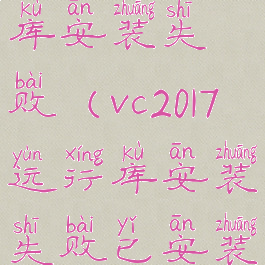 kù ān zhuāng shī
库安装失
bài
败 (VC2017
yùn xíng kù ān zhuāng
运行库安装
shī bài yǐ ān zhuāng
失败已安装